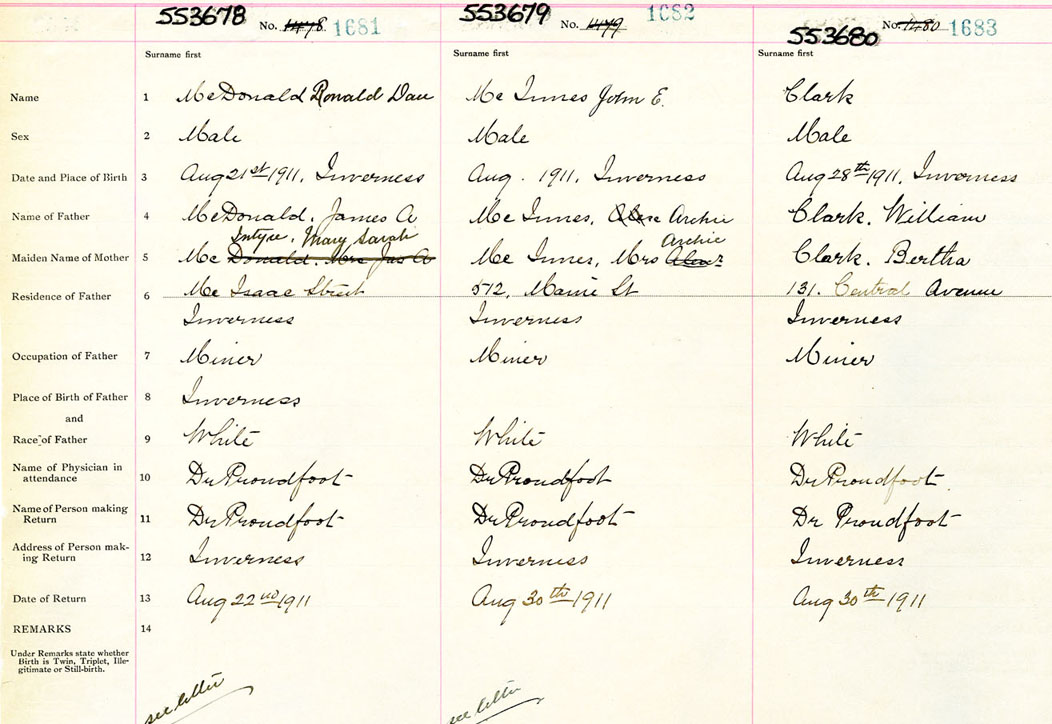 553678 No. 1478 1681 553679 No. 1479 1682 553680 No. 1480 1683
Surname first Surname first Surname first
Name 1 McDonald Ronald Dan Mc Innes John E. Clark
Sex 2 Male Male Male
Date and Place of Birth 3 Aug 21st 1911, Inverness Aug. 1911, Inverness Aug 28th 1911, Inverness
Name of Father 4 McDonald, James A Mc Innes, Archie Clark, William
Intyre, Mary Sarah Archie
Maiden Name of Mother 5 Mc Donald, Mrs Jas A Mc Innes, Mrs Alex Clark, Bertha
Residence of Father 6 Mc Isaac Street 572, Maine St 131, Central Avenue
Inverness Inverness Inverness
Occupation of Father 7 Miner Miner Miner
Place of Birth of Father 8 Inverness
and
Race of Father 9 White White White
Name of Physician in
attendance 10 Dr Proudfoot Dr Proudfoot Dr Proudfoot
Name of Person making
Return 11 Dr Proudfoot Dr Proudfoot Dr Proudfoot
Address of Person mak-
ing Return 12 Inverness Inverness Inverness
Date of Return 13 Aug 22nd 1911 Aug 30th 1911 Aug 30th 1911
REMARKS 14
Under Remarks state whether
Birth is Twin, Triplet, Ille-
gitimate or Still-birth.
see letter see letter